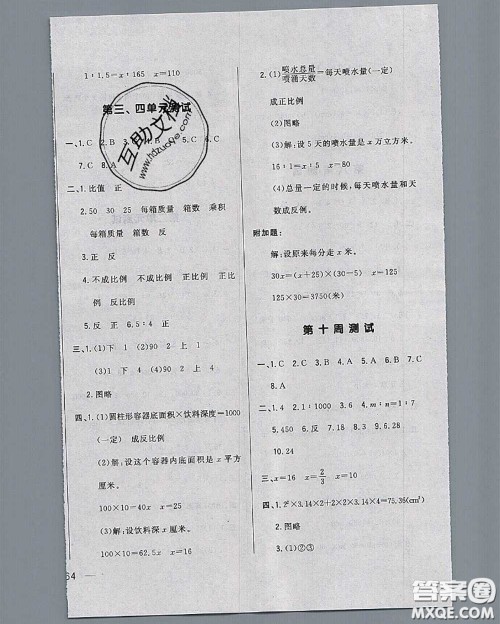 1∶1.5=x∶165　x=110
第三、四单元测试
一、1.C　2.B　3.　C　6.C
7.C　8.A
二、1.比值　正
2.50　30　25　每箱质量　箱数　乘积
每箱质量　箱数　反
3.反　正
4.不成比例　不成比例　正比例　正比
例　反比例
5.反　正　6.5∶4　正
三、1.(1)下　1　(2)90　2　上　1
(3)上　1　(4)90　2　下　1
2.图略
四、1.(1)圆柱形容器底面积×饮料深度=1000
(一定)　成反比例
(2)解:设这个容器内底面积是 x 平方
厘米。
100×10=40x　x=25
(3)解:设饮料深 x 厘米。
100×10=62.5x　x=16
64
互助文档
www.hdzuoye.com
2.(1)喷水总量/喷涌天数=每天喷水量(一定)
成正比例
(2)图略
(3)解:设 5 天的喷水量是 x 万立方米。
16∶1=x∶5　x=80
(4)总量一定的时候,每天喷水量和天
数成反例。
附加题:
解:设原来每分走 x 米。
30x=(x+25)×(30-5)　x=125
125×30=3750(米)
第十周测试
一、1.C　2.C　3.B　4.B　5.A　6.B　7.C
8.A
二、1.4　2.1∶1000　3.18　4.m∶n=1∶7
5.450　6.反　7.B　8.3　9.6.28
10.24
三、x=16　x=2/3　x=10
四、1.2²×3.14×2+2×2×3.14×4=75.36(cm²)
2.图略
3.(1)①②③
答案圈
MXQE.COM